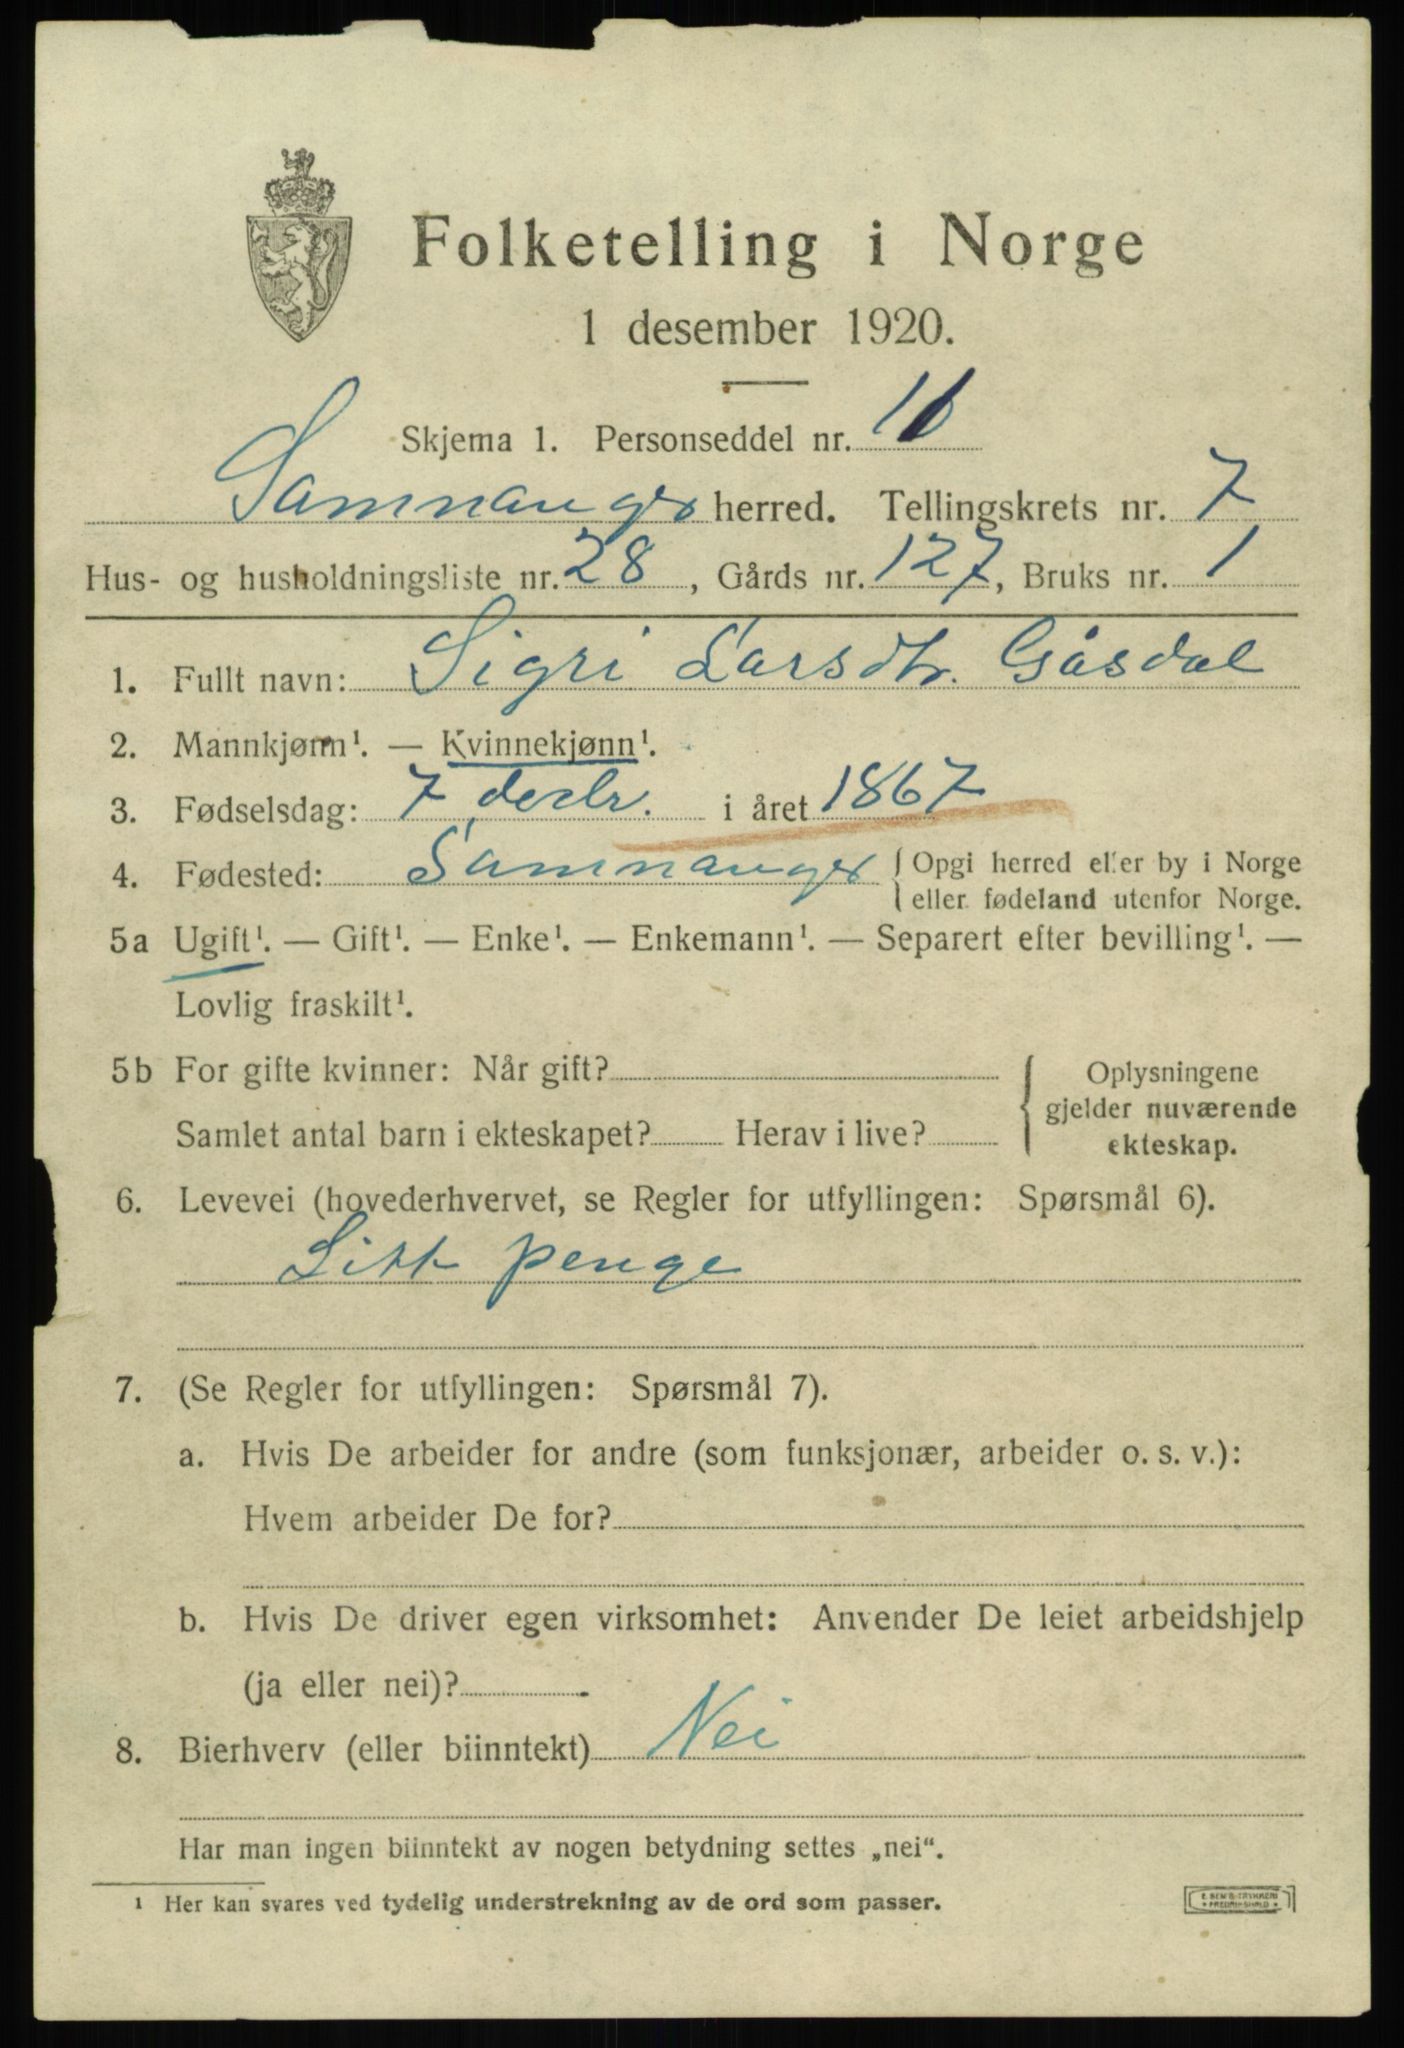 Folketelling i Norge
1 desember 1920.
Skjema 1. Personseddel nr.
Samnanger herred. Tellingskrets nr. 7
Hus- og husholdningsliste nr. 28, Gårds nr. 127, Bruks nr. 1
1. Fullt navn: Sigri Larsdtr. Gåsdal
2. Mannkjønn¹. — Kvinnekjønn¹.
3. Fødselsdag: 7 decbr. i året 1867
4. Fødested: Samnanger { Opgi herred eller by i Norge
eller fødeland utenfor Norge.
5a Ugift¹. — Gift¹. — Enke¹. — Enkemann¹. — Separert efter bevilling¹. —
Lovlig fraskilt¹.
5b For gifte kvinner: Når gift?
Samlet antal barn i ekteskapet? Herav i live?
Oplysningene
gjelder nuværende
ekteskap.
6. Levevei (hovederhvervet, se Regler for utfyllingen: Spørsmål 6).
Litt penge
7. (Se Regler for utfyllingen: Spørsmål 7).
a. Hvis De arbeider for andre (som funksjonær, arbeider o. s. v.):
Hvem arbeider De for?
b. Hvis De driver egen virksomhet: Anvender De leiet arbeidshjelp
(ja eller nei)?
8. Bierhverv (eller biinntekt) Nei
Har man ingen biinntekt av nogen betydning settes „nei“.
¹ Her kan svares ved tydelig understrekning av de ord som passer.